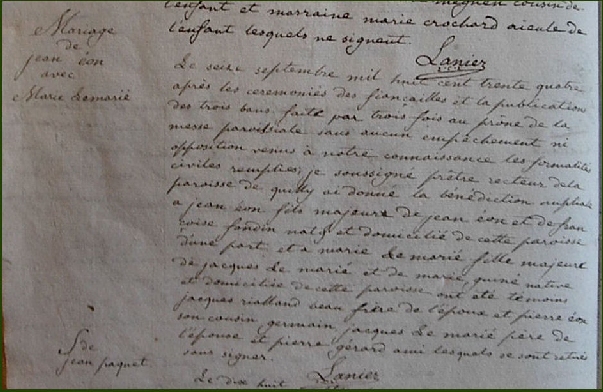 l'enfant et marraine marie crochard aieule de
l'enfant lesquels ne signent.
Lanier
Mariage
de
jean éon
avec
Marie Lemarié
Le seise septembre mil huit cent trente quatre
après les ceremoniés des fiancailles et la publication
des trois bans faite par trois fois au prône de la
messe paroissiale sans aucun empêchement ni
opposition venus à notre connaissance les formalités
civiles remplies, je soussigné prêtre recteur de la
paroisse de quilly ai donné la bénédiction nuptiale
a jean éon fils majeur de jean éon et de fran
coise fondin natif et domicilié de cette paroisse
d'une part et a marie Le marié fille majeure
de jacques Le marié et de marie quiné native
et domiciliée de cette paroisse ont été témoins
jacques rialland beau frère de l'epoux et pierre éon
son cousin germain, jacques Le marié père de
l'épouse et pierre gérard ami lesquels se sont retirés
sans signer.
Lanier
S de
jean paquet
Le dix huit